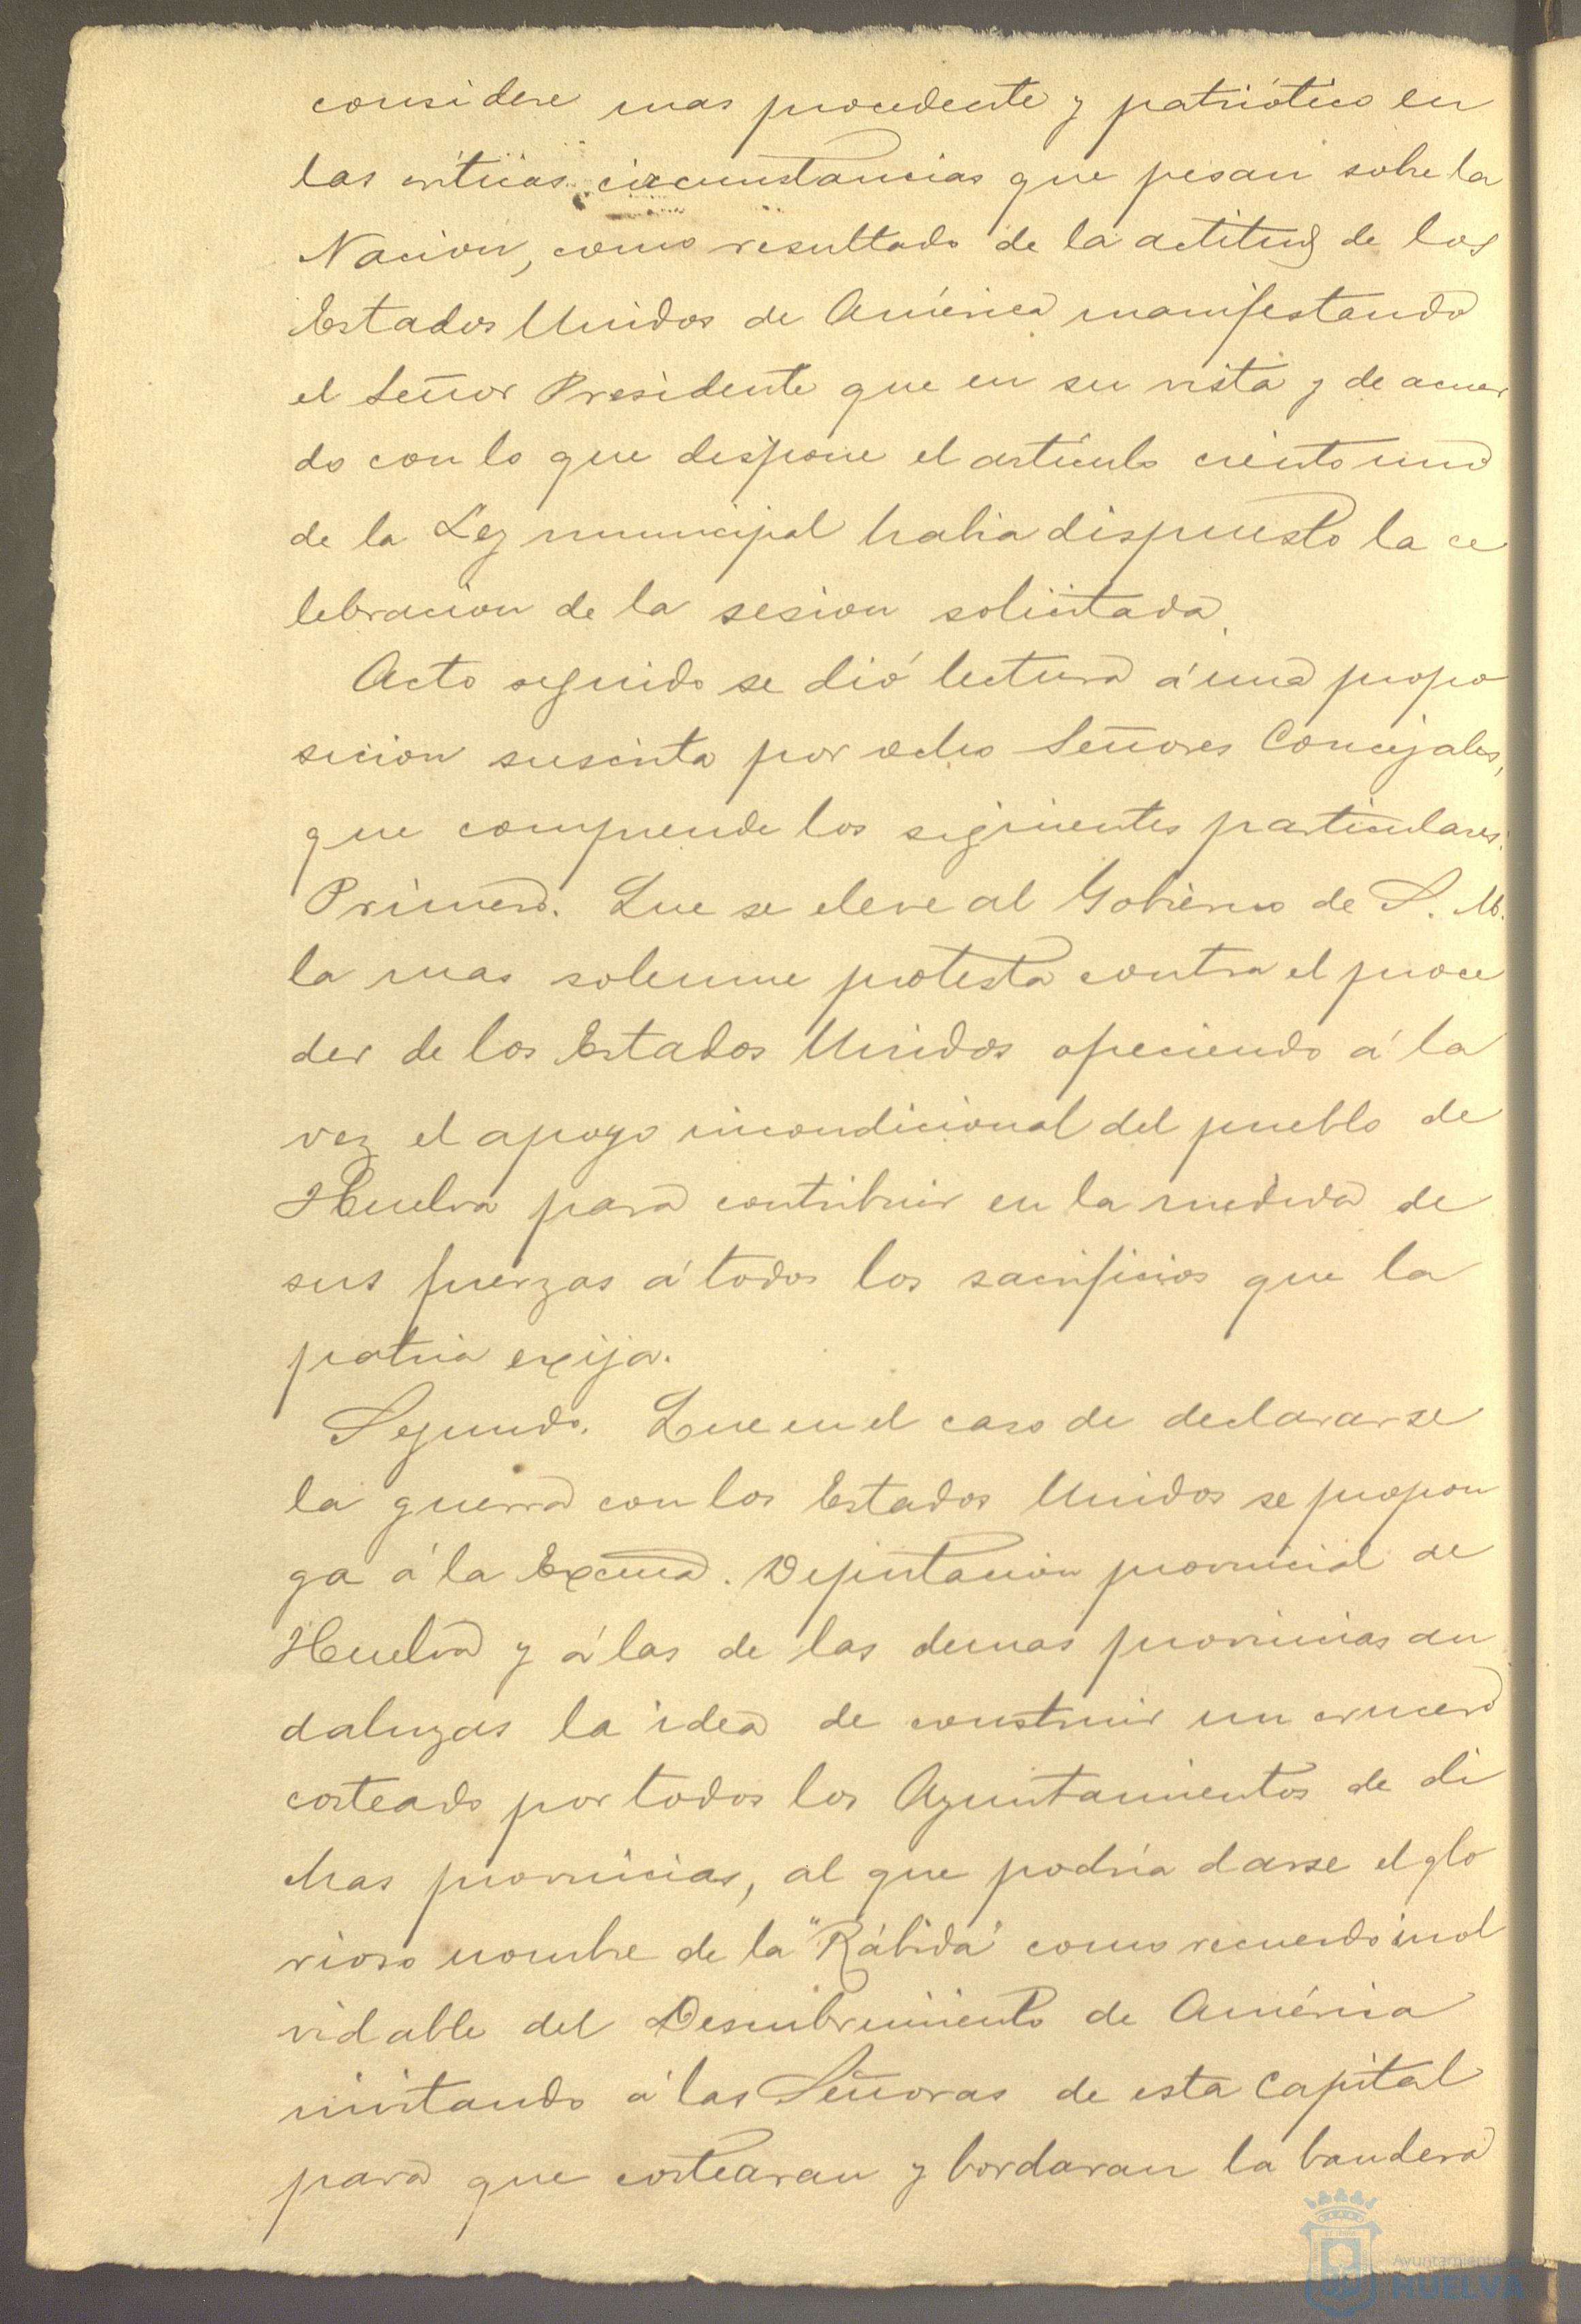 considere mas procedente y patriótico en
las críticas circunstancias que pesan sobre la
Nacion, como resultado de la actitud de los
Estados Unidos de América manifestando
el Señor Presidente que en su vista y de acuer
do con lo que dispone el artículo ciento uno
de la Ley municipal habia dispuesto la ce
lebracion de la sesion solicitada.
Acto seguido se dió lectura á una propo
sicion suscrita por ocho Señores Concejales,
que comprende los siguientes particulares.
Primero. Que se eleve al Gobierno de S. M.
la mas solemne protesta contra el proce
der de los Estados Unidos ofreciendo á la
vez el apoyo incondicional del pueblo de
Huelva para contribuir en la medida de
sus fuerzas á todos los sacrificios que la
patria exija.
Segundo. Que en el caso de declararse
la guerra con los Estados Unidos se propon
ga á la Excma. Diputacion provincial de
Huelva y á las de las demas provincias an
daluzas la idea de construir un crucero
costeado por todos los Ayuntamientos de di
chas provincias, al que podría darse el glo
rioso nombre de la "Rábida" como recuerdo inol
vidable del Descubrimiento de América
invitando á las Señoras de esta Capital
para que costearan y bordaran la bandera
Ayuntamiento
HUELVA